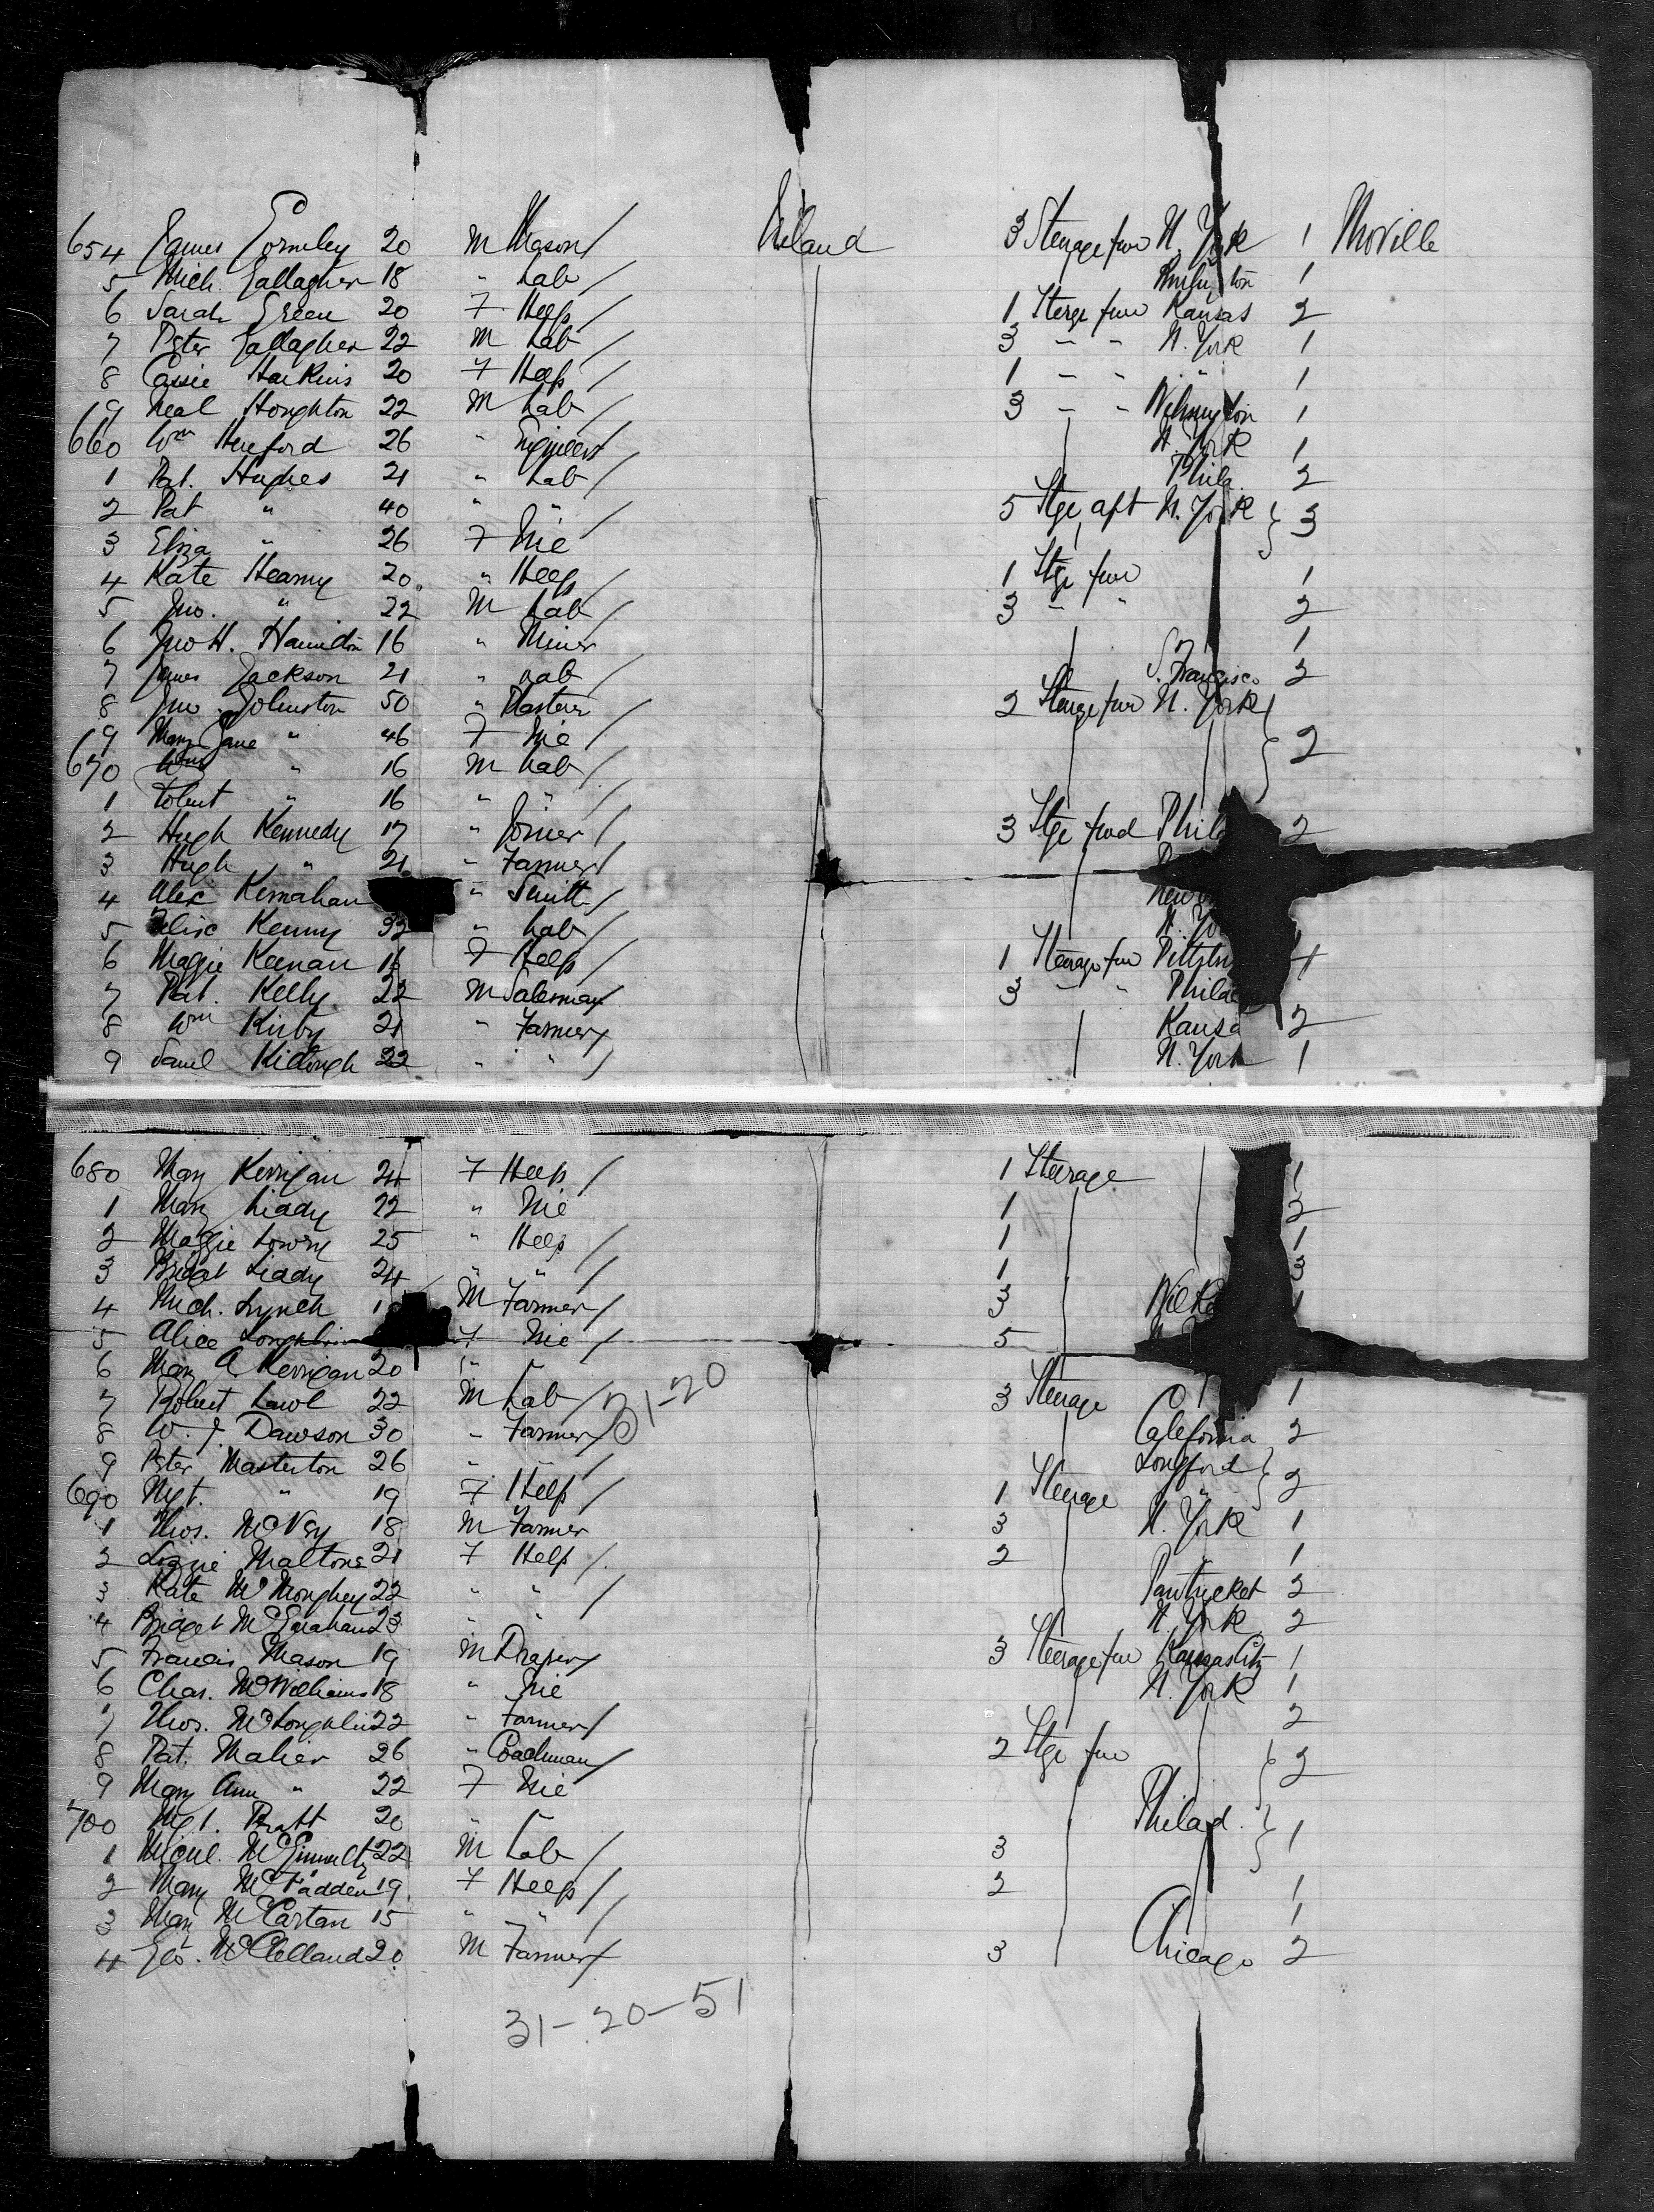 654 James Gormley 20 M Mason / Ireland 3 Steerage fwd N. York 1 Moville
5 Mich. Gallagher 18 " Lab / 1
6 Sarah Green 20 F Help / 1 Sterge fwd Kansas 2
7 Peter Gallagher 22 M Lab / 3 " " N. York 1
8 Cassie Harkins 20 F Help / 1 " " " 1
9 Neal Houghton 22 M Lab / 3 " " Wilmington 1
660 Wm Hueford 26 " Engineer / N. York 1
1 Pat. Hughes 21 " Lab / Phila 2
2 Pat " 40 " " / 5 Stge aft N. York } 3
3 Eliza " 26 F Nie
4 Kate Hearny 20 " Help / 1 Stge fwd 1
5 Jno. " 22 M Lab / 3 " " 2
6 Jno H. Hamilton 16 " Miner 1
7 James Jackson 21 " Lab / S. Francisco 2
8 Jno. Johnston 50 " Plasterer 2 Steerage fwd N. York }
9 Mary Jane " 46 F Nie / 2
670 Wm " 16 M Lab /
1 Robert " 16 " " /
2 Hugh Kennedy 17 " Joiner / 3 Stge fwd Phil 2
3 Hugh " 21 " Farmer /
4 Alex Kernahan " Smith / New
5 Kenny 32 " Lab / N. Yo
6 Maggie Keenan 16 F Help / 1 Steerage fwd Pittsbu
7 Pat. Kelly 22 M Salesman / 3 " " Philad
8 Wm Kirby 21 " Farmer / Kansa 2
9 Saml Kidough 22 " " / N. York 1
680 Mary Kerrigan 24 F Help / 1 Steerage 1
1 Mary Liady 22 " Nie 1 2
2 Maggie Lowry 25 " Help / 1 1
3 Bridget Liady 24 " " / 1 3
4 Mich. Lynch 1 M Farmer / 3 1
5 Alice Loughlin F Nie / 5
6 Mary A Kerrigan 20 " "
7 Robert Lawl 22 M Lab / 31-20 3 Steerage 1
8 W. J. Dawson 30 " Farmer / California 2
9 Peter Masterton 26 " " / Longford } 2
690 Mgt. " 19 F Help / 1 Steerage "
1 Thos. McVey 18 M Farmer 3 N. York 1
2 Lizzie Maltons 21 F Help / 2 1
3 Kate McMonghey 22 " " / Pawtucket 2
4 Bridget McGarahan 23 " " N. York 2
5 Francis Mason 19 M Draper / 3 Steerage fwd Kansas City 1
6 Chas. McWilliams 18 " Nie N. York 1
7 Thos. McLoughlin 22 " Farmer / 2
8 Pat. Maher 26 " Coachman / 2 Stge fwd } 2
9 Mary Ann " 22 F Nie
700 Mgt. Pratt 20 " " Philad. } 1
1 Michl. McGinnulty 22 M Lab / 3
2 Mary McFadden 19 F Help / 2 1
3 Mary McCartan 15 " " / 1
4 Geo. McClelland 20 M Farmer / 3 Chicago 2
31-20-51